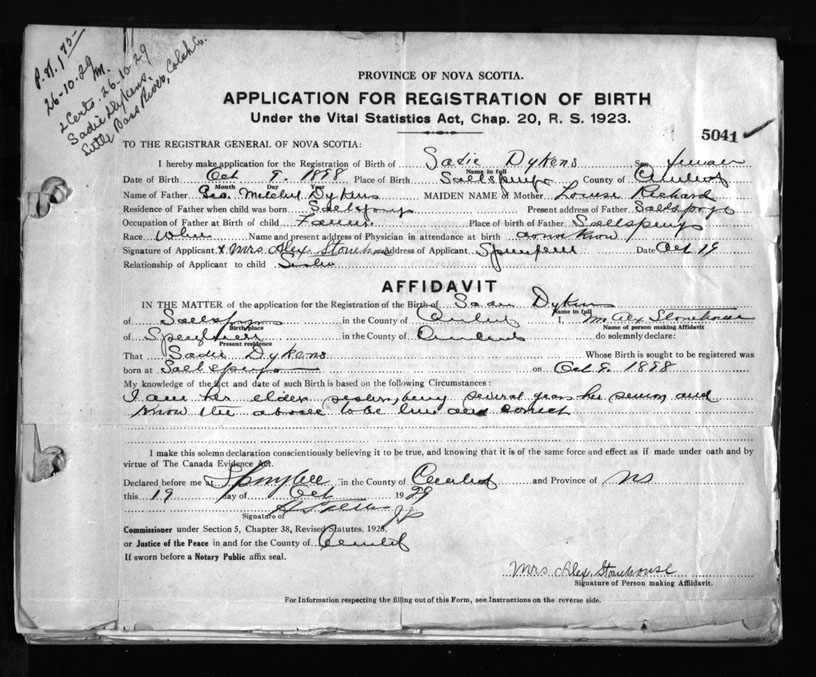 P.N. 1 75
26-10-29 M.
2 Certs. 26.10.29
Sadie Dykens.
Little Bass River, Colch Co.
PROVINCE OF NOVA SCOTIA.
APPLICATION FOR REGISTRATION OF BIRTH
Under the Vital Statistics Act, Chap. 20, R. S. 1923.
5041
TO THE REGISTRAR GENERAL OF NOVA SCOTIA:
I hereby make application for the Registration of Birth of Sadie Dykens Sex female
Name in full
Date of Birth Oct 8. 1898 Place of Birth Saltsprings County of Cumb
Month Day Year
Name of Father Geo. Mitchel Dykens MAIDEN NAME of Mother Louise Richard
Residence of Father when child was born Saltsprings Present address of Father Saltsprings
Occupation of Father at Birth of child Farmer Place of birth of Father Saltsprings
Race White Name and present address of Physician in attendance at birth dont know
Signature of Applicant x Mrs Alex. Stonehouse Address of Applicant Date Oct 19
Relationship of Applicant to child Sister
AFFIDAVIT
IN THE MATTER of the application for the Registration of the Birth of Sadie Dykens
Name in full
of Saltsprings in the County of Cumb I, Mrs Alex Stonehouse
Birthplace Name of person making Affidavit
of in the County of do solemnly declare:
Present residence
That Sadie Dykens Whose Birth is sought to be registered was
born at Saltsprings on Oct 8. 1898
My knowledge of the fact and date of such Birth is based on the following Circumstances:
I am her elder sister, being several years her senior and
know the above to be true and correct
I make this solemn declaration conscientiously believing it to be true, and knowing that it is of the same force and effect as if made under oath and by
virtue of The Canada Evidence Act.
Declared before me at in the County of and Province of NS
this 19 day of Oct 1929
Signature of JP
Commissioner under Section 5, Chapter 38, Revised Statutes. 1923,
or Justice of the Peace in and for the County of
If sworn before a Notary Public affix seal.
Mrs. Alex. Stonehouse
Signature of Person making Affidavit.
For Information respecting the filling out of this Form, see Instructions on the reverse side.